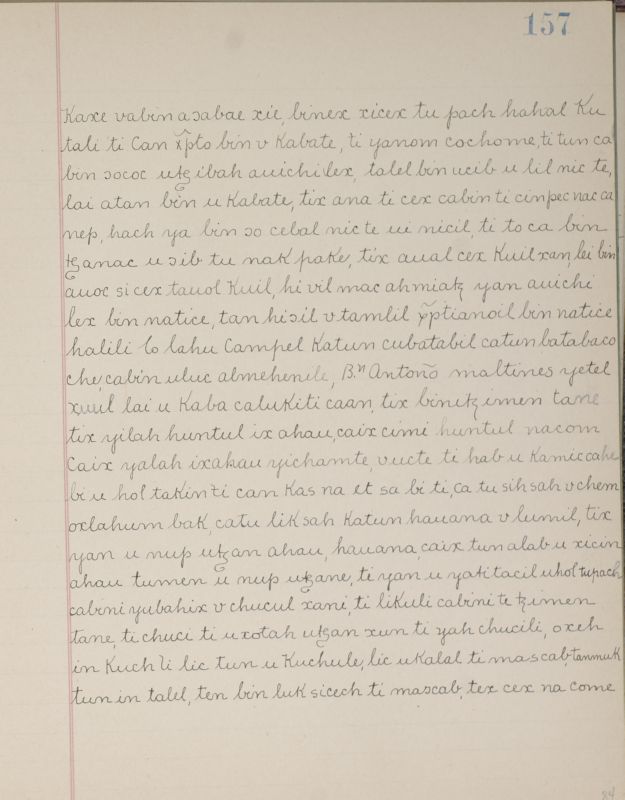 157
Kaxe vabin aɔabae xic, binex xicex tu pach hahal Ku
tali ti Caan x̃pto bin v Kabate, ti yanom cochome, ti tun ca
bin ɔococ utꜩ ibah auichilex, talel bin ucib u lil nic te,
lai atan bin u Kabate, tix ana ti cex cabin ti cinpec nac ca
nep, hach ya bin ɔo cebal nic te ui nicil, ti to ca bin
ꜩanac u ɔib tu nak pake, tix aual cex Kuil xan, lei bin
auoc sicex tauol Kuil, hi vil mac ahmiatz yan auichi
lex bin natice, tan hiɔil v tamlil x̃ptianoil bin natice
halili lo lahu Campel Katun cubatabil catun batabaco
che, cabin uluc almehenile, B.n Antoño maltines yetel
xuul lai u Kaba calukiti caan, tix binitz imen tane
tix yilah huntul ix ahau, caix cimi huntul nacom
Caix yalah ixahau yichamte, vucte ti hab u Kamiccahe
bi u hol takin ti can Kas na et sa bi ti, ca tu sihsah v chem
oxlahum bak, catu liksah Katun hauana v lumil, tix
yan u nup utꜩan ahau, hauana, caix tun alab u xicin
ahau tumen u nup utꜩane, ti yan u yatitacil uhol tupach
cabini yubahix v chucul xani, ti likuli cabini te tzimen
tane, ti chuci ti uxotah utꜩan xun ti yah chucili, oxeh
in Kuch li lic tun u Kuchule, lic uKalal ti mascab, tanmuk
tun in talel, ten bin luk sicech ti mascab, tex cex na come
84